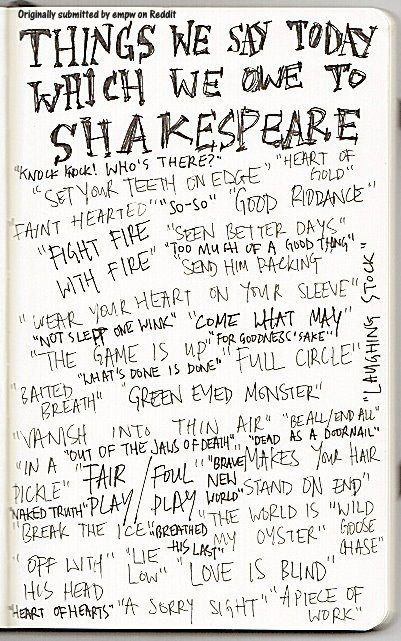 Originally submitted by empw on Reddit
THINGS WE SAY TODAY
WHICH WE OWE TO
SHAKESPEARE
"KNOCK KNOCK! WHO'S THERE?" "HEART OF GOLD"
"SET YOUR TEETH ON EDGE"
FAINT HEARTED" "SO-SO" "GOOD RIDDANCE"
"FIGHT FIRE WITH FIRE" "SEEN BETTER DAYS"
"TOO MUCH OF A GOOD THING"
"SEND HIM PACKING
"WEAR YOUR HEART ON YOUR SLEEVE"
"NOT SLEPT ONE WINK" "COME WHAT MAY"
"THE GAME IS UP" "FOR GOODNESS' SAKE"
"WHAT'S DONE IS DONE" "FULL CIRCLE"
"LAUGHING STOCK"
"BAITED BREATH" "GREEN EYED MONSTER"
"VANISH INTO THIN AIR" "BE ALL/END ALL"
"OUT OF THE JAWS OF DEATH" "DEAD AS A DOORNAIL"
"IN A PICKLE" "FAIR PLAY/FOUL PLAY" "BRAVE NEW WORLD" MAKES YOUR HAIR STAND ON END"
"NAKED TRUTH"
"BREAK THE ICE" "BREATHED HIS LAST" "THE WORLD IS MY OYSTER" "WILD GOOSE CHASE"
"OFF WITH HIS HEAD "LIE LOW" "LOVE IS BLIND"
"HEART OF HEARTS" "A SORRY SIGHT" "A PIECE OF WORK"